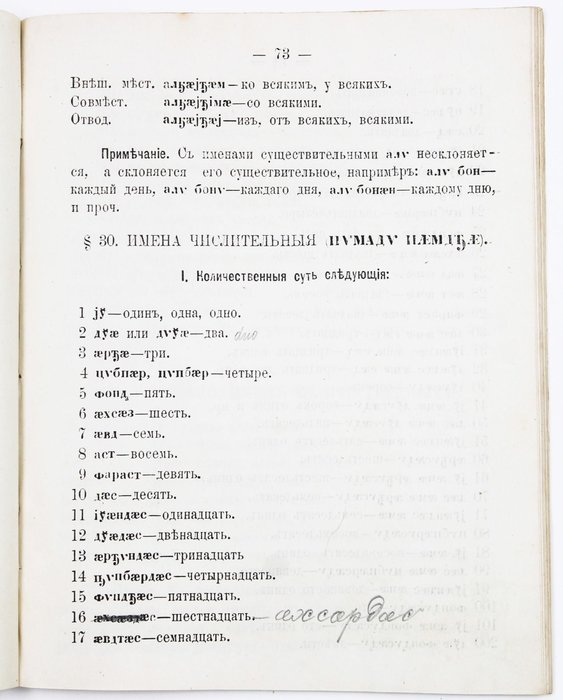 — 73 —
Внѣш. мѣст. алџæјџæм—ко всякимъ, у всякихъ.
Совмѣст. алџæјџімæ—со всякими.
Отвод. алџæјџæј—изъ, отъ всякихъ, всякими.
Примѣчаніе. Съ именами существительными алу несклоняет-
ся, а склоняется его существительное, напримѣръ: алу бон—
каждый день, алу бону—каждаго дня, алу бонæн—каждому дню,
и проч.
§ 30. ИМЕНА ЧИСЛИТЕЛЬНЫЯ
I. Количественныя суть слѣдующія:
1 јў—одинъ, одна, одно.
2 дўæ или дуўæ—два.
3 —три.
4 цуппæр—четыре.
5 фонд—пять.
6 æхсæз—шесть.
7 æвд—семь.
8 аст—восемь.
9 фараст—девять.
10 дæс—десять.
11 јўæндæс—одинадцать.
12 дўæдæс—двѣнадцать.
13 —тринадцать
14 —четырнадцать.
15 —пятнадцать.
16 —шестнадцать. æхсардæс
17 æвдтæс—семнадцать.